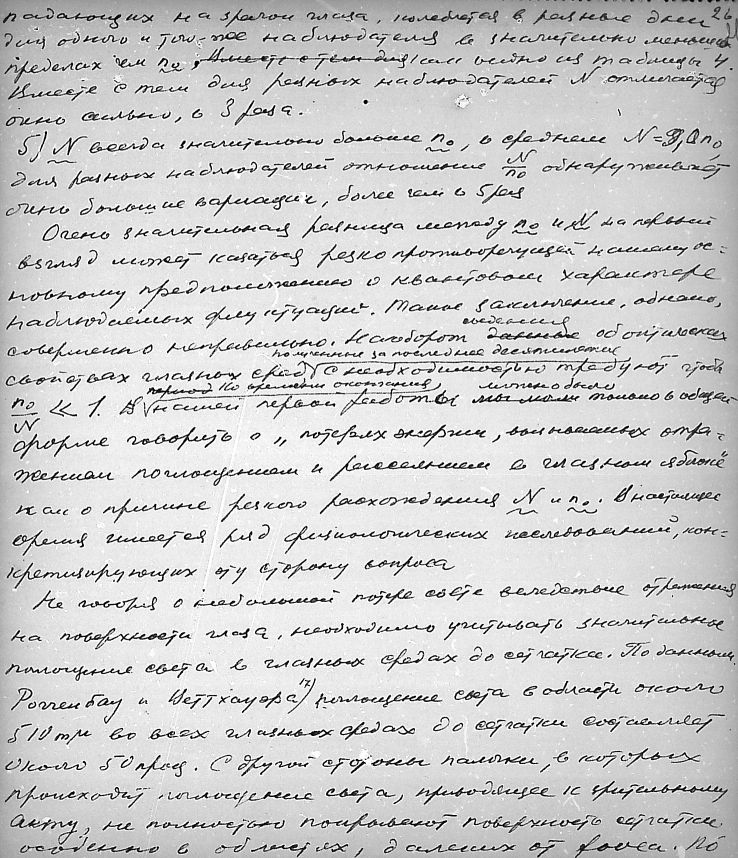 26
падающих на зрачок глаза, колеблется в разные дни
для одного и того-же наблюдателя в значительно меньших
пределах чем n₀, как видно из таблицы 4.
Вместе с тем для разных наблюдателей N отличается
очень сильно, в 3 раза.
5) N всегда значительно больше n₀, в среднем N = n₀,
для разных наблюдателей отношение N/n₀ обнаруживает
очень большие вариации, более чем в 5 раз
Очень значительная разница между n₀ и N на первый
взгляд может казаться резко противоречущей нашему ос-
новному предположению о квантовом характере
наблюдаемых флуктуаций. Такое заключение, однако,
сведения
совершенно неправильно. Наоборот данные об оптических
полученные за последнее десятилетие
свойствах глазных сред с необходимостью требуют чтобы
период ко времени окончания можно было
n₀/N ≪ 1. В нашей первой работы мы могли только в общей
форме говорить о „потерях энергии, вызываемых отра-
жением поглощением и рассеянием в глазном яблоке"
как о причине резкого расхождения N и n₀. В настоящее
время имеется ряд физиологических исследований, кон-
кретизирующих эту сторону вопроса
Не говоря о небольшой потере света вследствие отражения
на поверхности глаза, необходимо учитывать значительные
поглощение света в глазных средах до сетчатки. По данным
Роггенбау и Веттхауэра¹⁷⁾ поглощение света в области около
510 mμ во всех глазных средах до сетчатки составляет
около 50 проц. С другой стороны палочки, в которых
происходит поглощение света, приводящее к зрительному
акту, не полностью покрывают поверхность сетчатки
особенно в областях, далеких от fovea. По